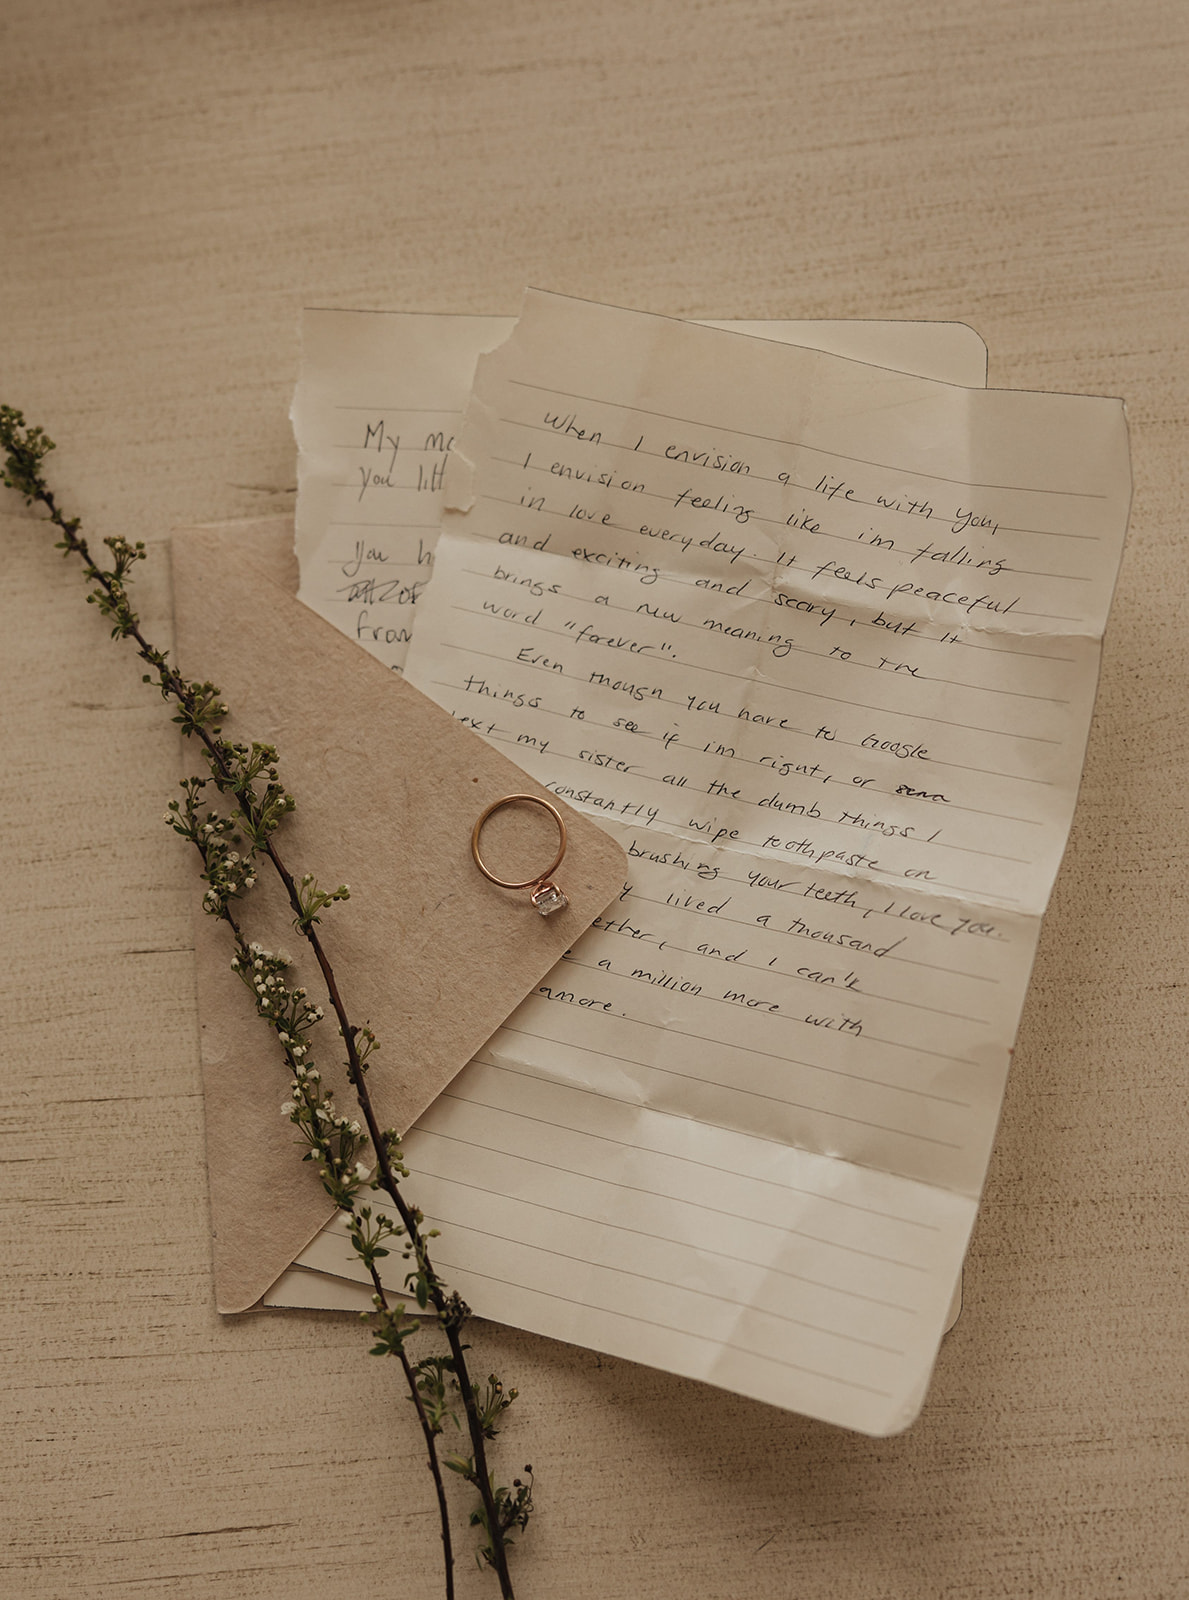 My
you
you
from
When I envision a life with you,
I envision feeling like i'm falling
in love everyday. It feels peaceful
and exciting and scary, but it
brings a new meaning to the
word "forever".
Even though you have to Google
things to see if i'm right, or send
text my sister all the dumb things I
constantly wipe toothpaste on
brushing your teeth, I love you.
lived a thousand
ether, and I can't
a million more with
amore.